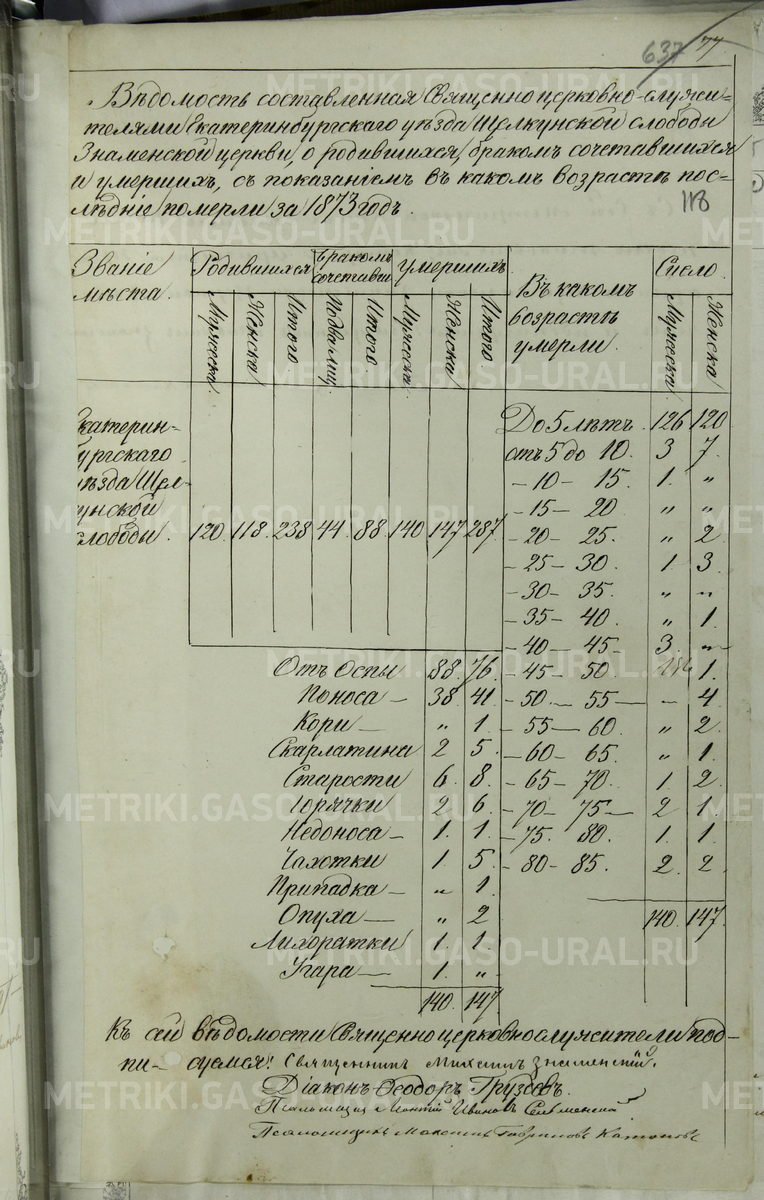 637 77
Вѣдомость составленная Священноцерковно-служи-
телями Екатеринбургскаго уѣзда Щелкунской слободы
Знаменской церкви, о родившихся, бракомъ сочетавшихся
и умершихъ, съ показаніемъ въ какомъ возрастѣ пос-
лѣдніе померли за 1873 годъ.
118
Званіе мѣста. Родившихся Бракомъ сочетавш. Умершихъ. Въ какомъ возрастѣ умерли. Число.
Мужеска. Женска Итого Подва лиц. Итого Мужеска Женска Итого Мужеска Женска
Екатерин-
бургскаго
уѣзда Щел-
кунской
слободы. 120. 118. 238 44. 88. 140 147 287.
До 5 лѣтъ. 126 120
отъ 5 до 10. 3 7.
-10- 15. 1. „
-15- 20 „ „
-20- 25. „ 2
-25- 30. 1 3.
-30- 35. „ „
-35- 40. „ 1.
-40- 45. 3. „
-45- 50 1.
-50.- 55- - 4
-55- 60. „ 2.
-60- 65. „ 1.
-65- 70. 1. 2.
-70- 75- 2 1.
-75. 80. 1. 1.
-80- 85. 2. 2.
140. 147.
Отъ Оспы 88. 76.
Поноса - 38. 41.
Кори - „ 1.
Скарлатина 2 5.
Старости 6. 8.
Горячки 2 6.
Недоноса - 1. 1.
Чахотки 1. 5.
Припадка - „ 1.
Опуха - „ 2
Лихоратки 1. 1
Угара - 1. „
140. 147
Къ сей вѣдомости Священноцерковнослужители под-
пи- суемся: Священникъ Михаилъ Знаменскій.
Діаконъ Ѳеодоръ Груздевъ.
Псаломщикъ Ивановъ
Псаломщикъ Максимъ Гавриловъ
METRIKI.GASO-URAL.RU